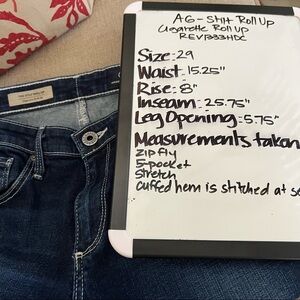 AG - Stilt Roll Up
Cigarette Roll Up
REV1333HDC
Size: 29
Waist: 15.25"
Rise: 8"
Inseam: 25.75"
Leg Opening: 5.75"
Measurements taken
zip fly
5-pocket
stretch
Cuffed hem is stitched at se